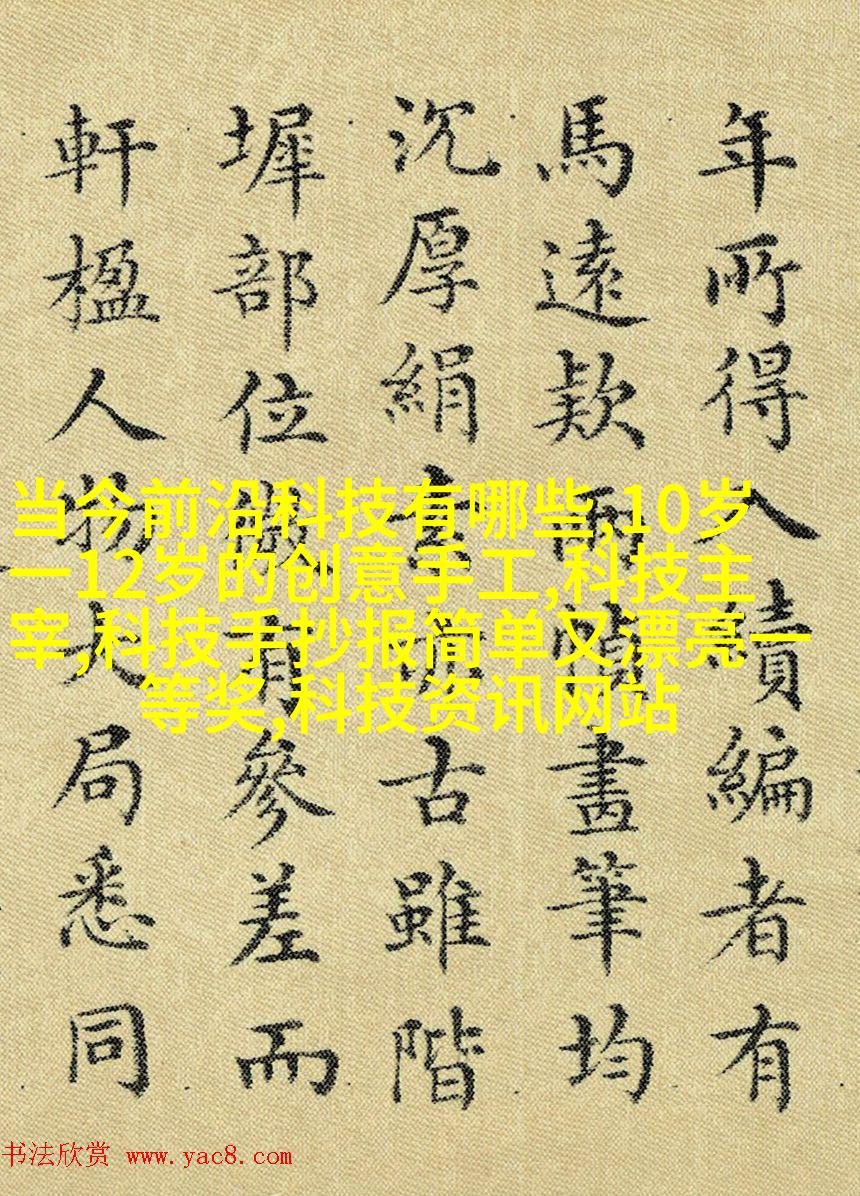 年所得入續編者有
馬遠欵兩幀畫筆均
沉厚絹古雖階
墀部位有參差而
軒楹人物大局悉同
当今前沿科技有哪些,10岁
一12岁的创意手工,科技主
宰,科技手抄报简单又漂亮一
等奖,科技资讯网站
书法欣赏 www.yac8.com